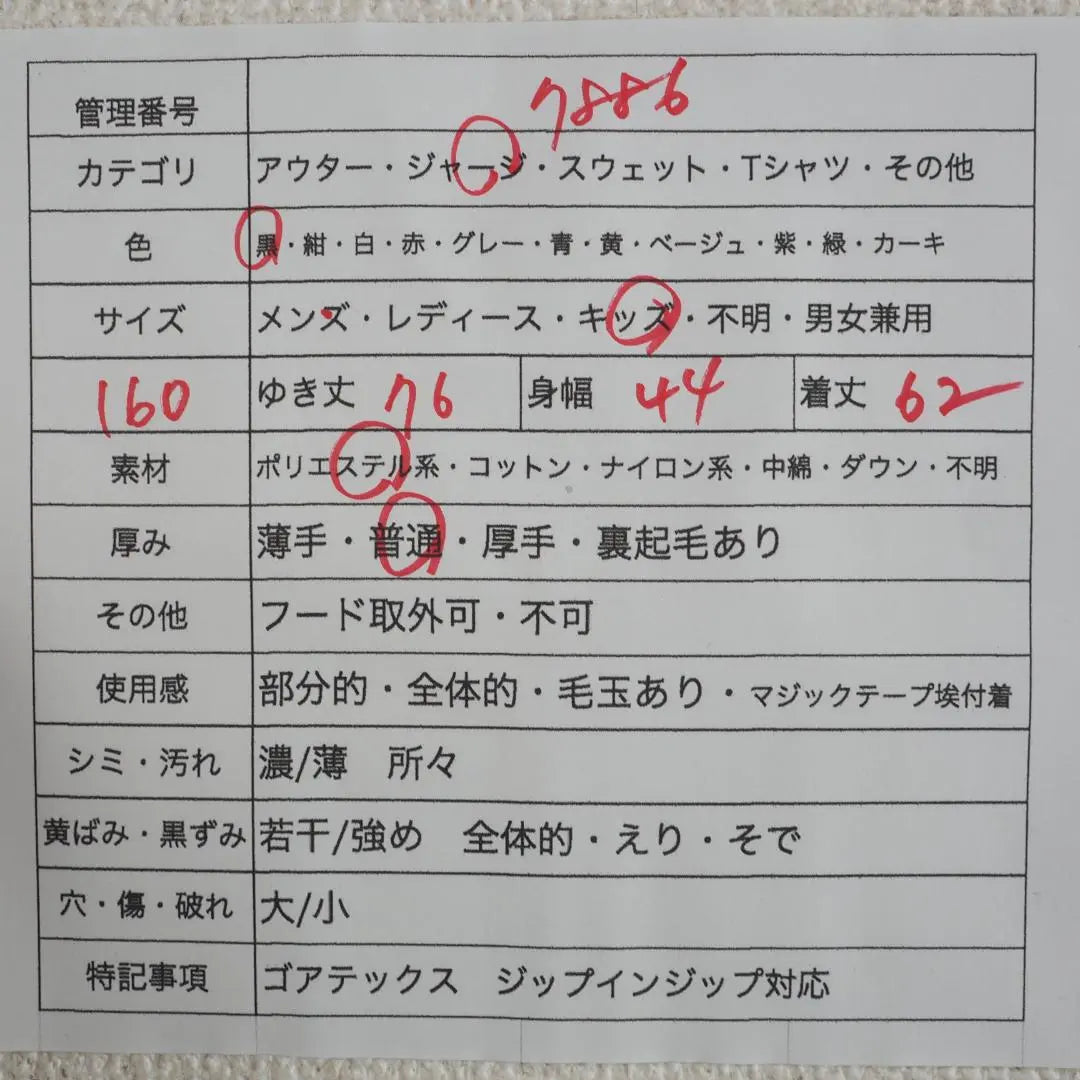 管理番号 7886
カテゴリ アウター・ジャージ・スウェット・Tシャツ・その他
色 黒・紺・白・赤・グレー・青・黄・ベージュ・紫・緑・カーキ
サイズ メンズ・レディース・キッズ・不明・男女兼用
160 ゆき丈 76 身幅 44 着丈 62
素材 ポリエステル系・コットン・ナイロン系・中綿・ダウン・不明
厚み 薄手・普通・厚手・裏起毛あり
その他 フード取外可・不可
使用感 部分的・全体的・毛玉あり・マジックテープ埃付着
シミ・汚れ 濃/薄 所々
黄ばみ・黒ずみ 若干/強め 全体的・えり・そで
穴・傷・破れ 大/小
特記事項 ゴアテックス ジップインジップ対応